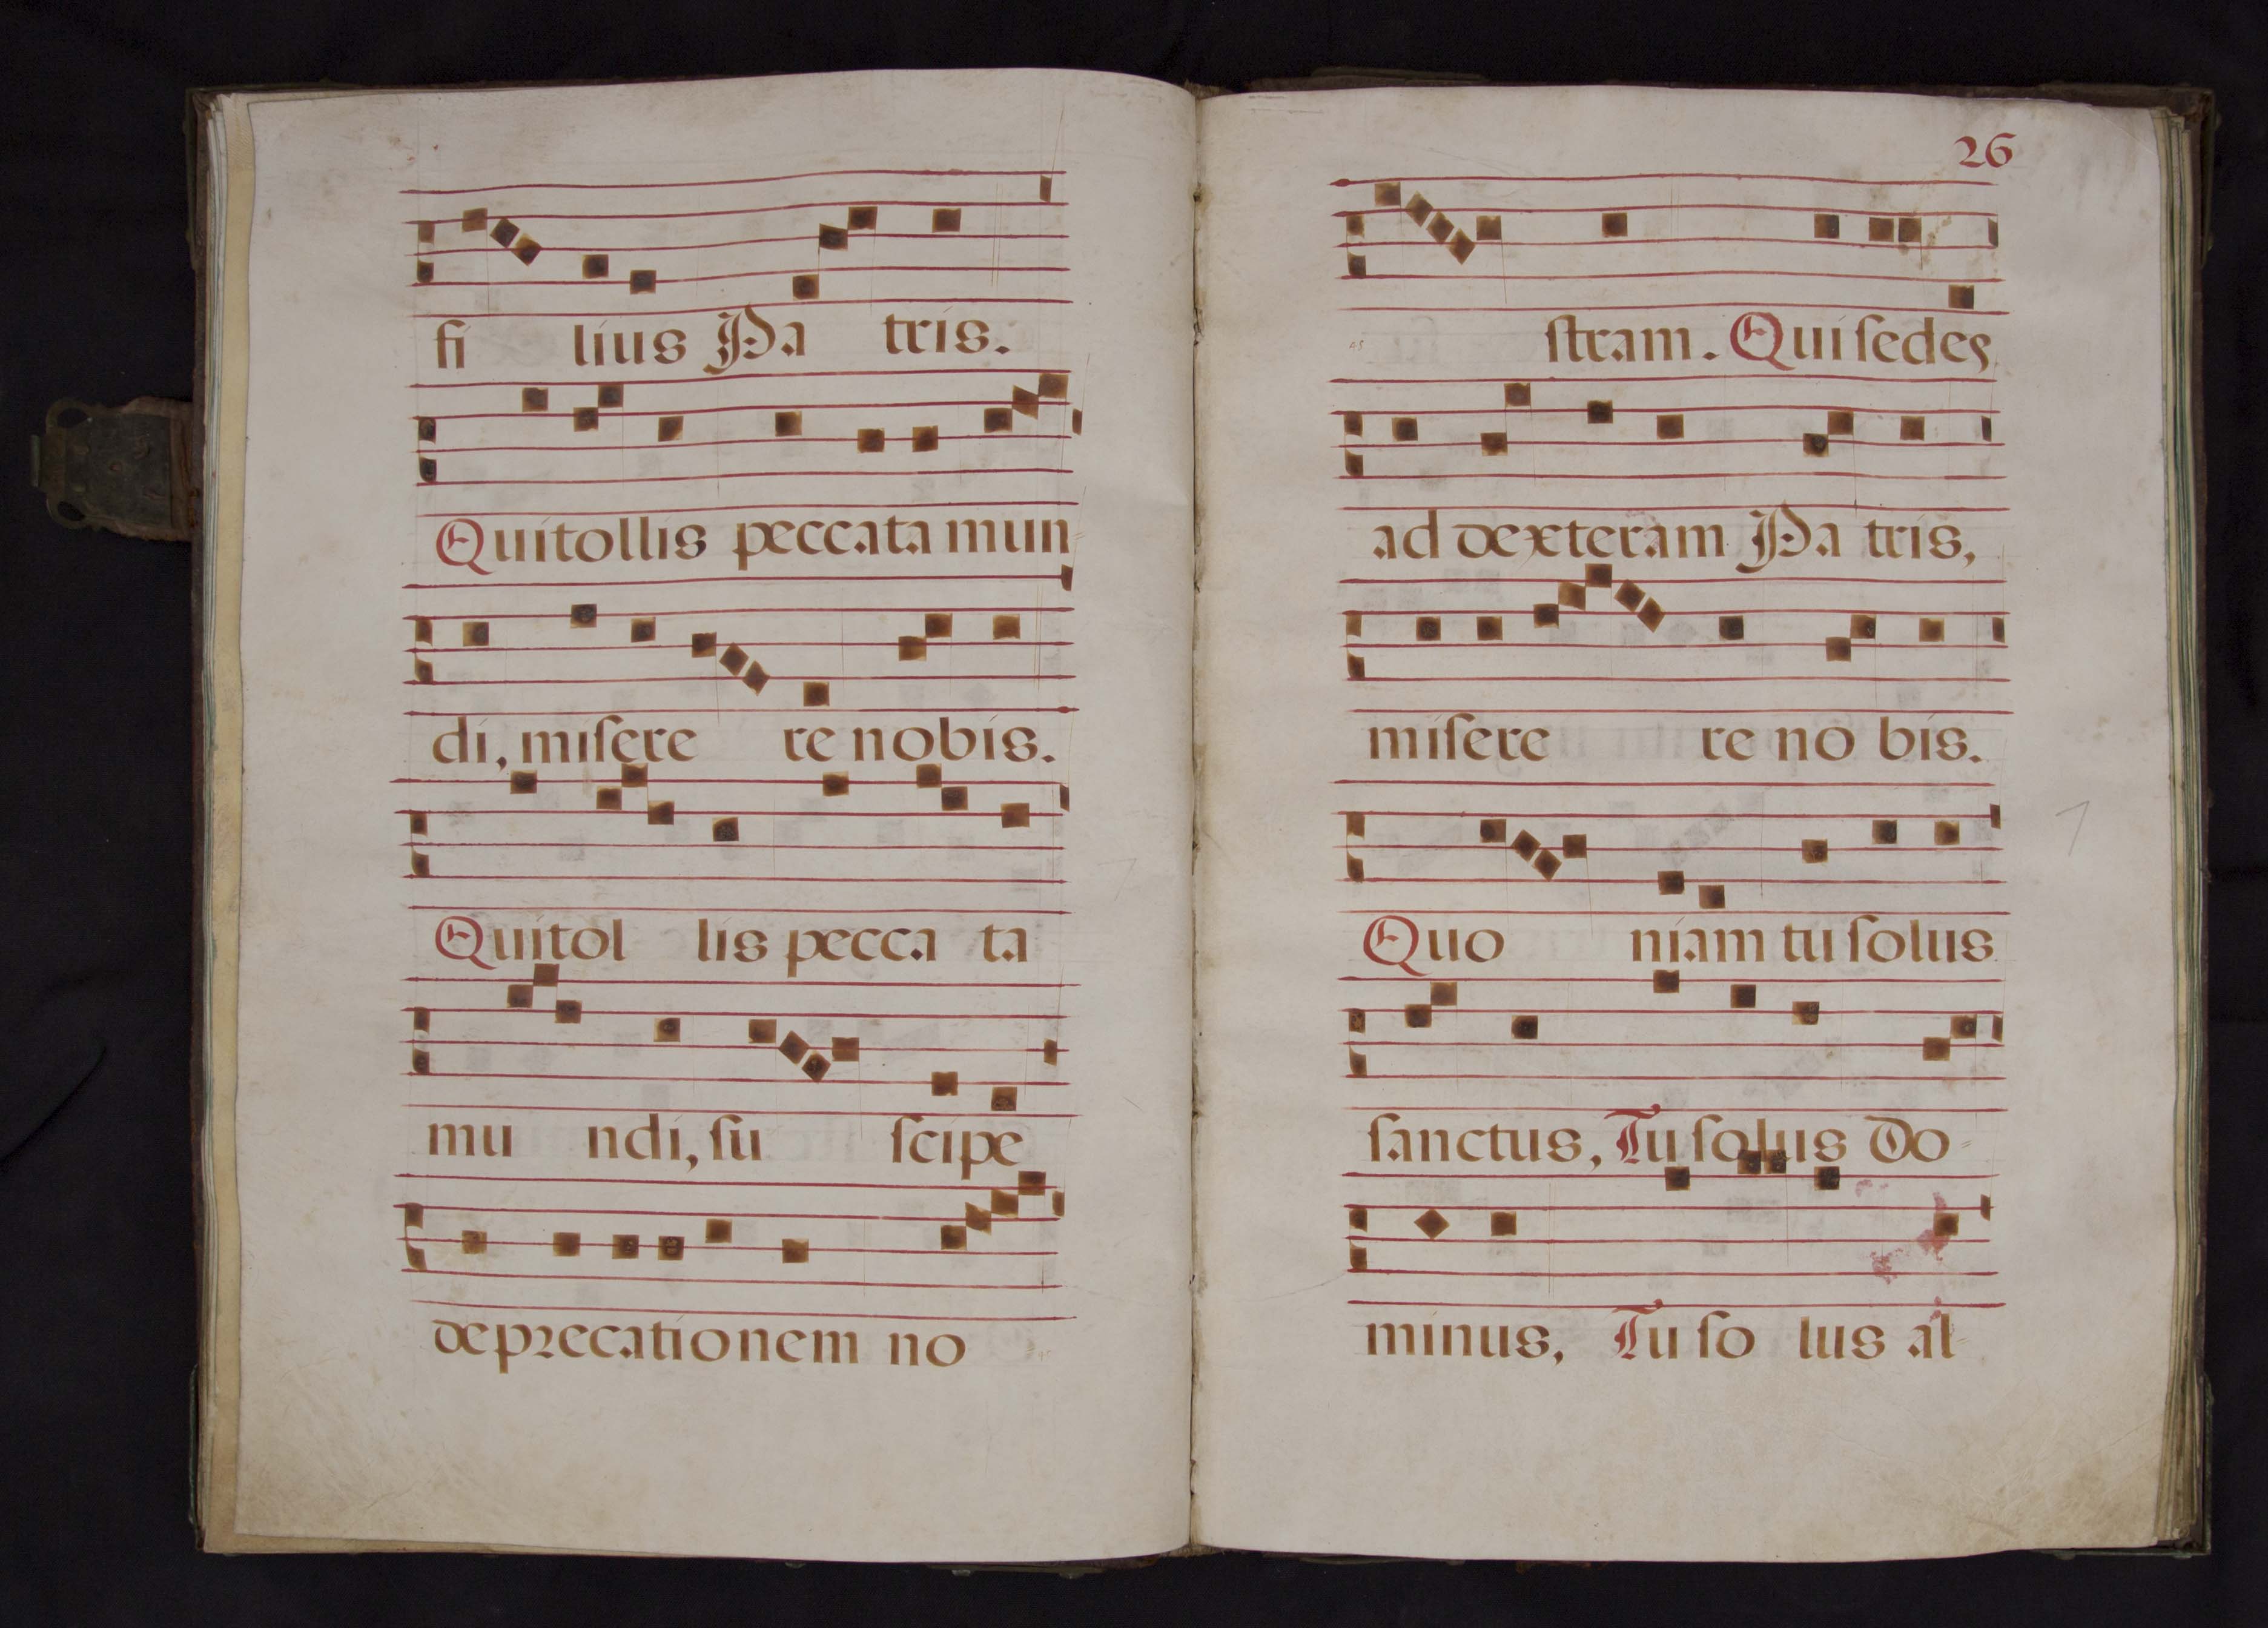 fi lius Pa tris.
Qui tollis peccata mun-
di, miſere re nobis.
Qui tol lis pecca ta
mu ndi, ſu ſcipe
deprecationem no
26
ſtram. Qui ſedes
ad dexteram Pa tris,
miſere re no bis.
Quo niam tu ſolus
ſanctus, Tu ſolus Do-
minus, Tu ſo lus al-